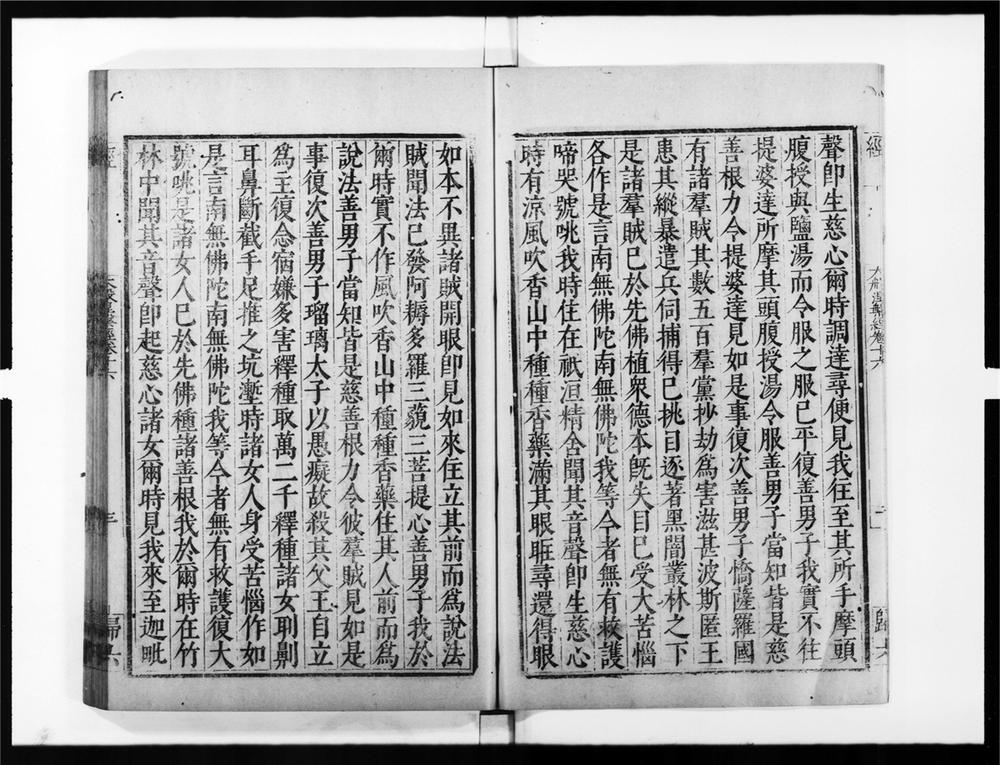 聲卽生慈心爾時調達尋便見我往至其所手摩頭
腹授與鹽湯而令服之服已平復善男子我實不往
提婆達所摩其頭腹授湯令服善男子當知皆是慈
善根力令提婆達見如是事復次善男子憍薩羅國
有諸羣賊其數五百羣黨抄劫爲害滋甚波斯匿王
患其縱暴遣兵伺捕得已挑目逐著黑闇叢林之下
是諸羣賊已於先佛植衆德本旣失目已受大苦惱
各作是言南無佛陀南無佛陀我等今者無有救護
啼哭號咷我時住在祇洹精舍聞其音聲卽生慈心
時有涼風吹香山中種種香藥滿其眼眶尋還得眼
如本不異諸賊開眼卽見如來住立其前而爲說法
賊聞法已發阿耨多羅三藐三菩提心善男子我於
爾時實不作風吹香山中種種香藥住其人前而爲
說法善男子當知皆是慈善根力令彼羣賊見如是
事復次善男子瑠璃太子以愚癡故殺其父王自立
爲主復念宿嫌多害釋種取萬二千釋種諸女刖劓
耳鼻斷截手足推之坑塹時諸女人身受苦惱作如
是言南無佛陀南無佛陀我等今者無有救護復大
號咷是諸女人已於先佛種諸善根我於爾時在竹
林中聞其音聲卽起慈心諸女爾時見我來至迦毗